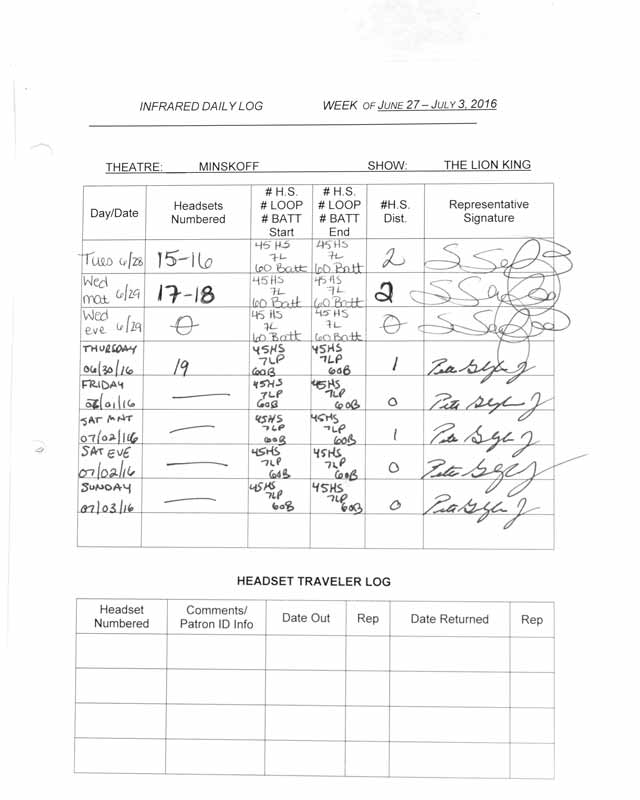 INFRARED DAILY LOG WEEK OF JUNE 27 – JULY 3, 2016
THEATRE: MINSKOFF SHOW: THE LION KING
Day/Date
Headsets
Numbered
# H.S.
# LOOP
# BATT
Start
# H.S.
# LOOP
# BATT
End
#H.S.
Dist.
Representative
Signature
Tues 6/28 15-16
45 HS
7L
60 Batt
45 HS
7L
60 Batt
2
Wed
mat 6/29
17-18
45 HS
7L
60 Batt
45 HS
7L
60 Batt
2
Wed
eve 6/29
0
45 HS
7L
60 Batt
45 HS
7L
60 Batt
0
THURSDAY
06/30/16
19
45HS
7LP
60B
45HS
7LP
60B
1
FRIDAY
/01/16
—
45HS
7LP
60B
45HS
7LP
60B
0
SAT MNT
07/02/16
—
45HS
7LP
60B
45HS
7LP
60B
1
SAT EVE
07/02/16
—
45HS
7LP
60B
45HS
7LP
60B
0
SUNDAY
07/03/16
—
45HS
7LP
60B
45HS
7LP
60B
0
HEADSET TRAVELER LOG
Headset
Numbered
Comments/
Patron ID Info
Date Out
Rep
Date Returned
Rep